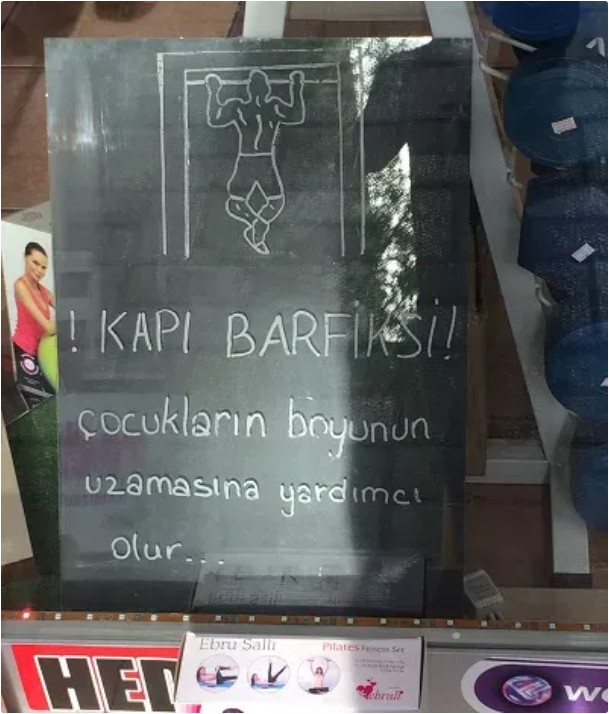 ! KAPI BARFİKSİ!
çocukların boyunun
uzamasına yardımcı
olur...
Ebru Şallı
Pilates Fitness Set
ebruli
HED
we